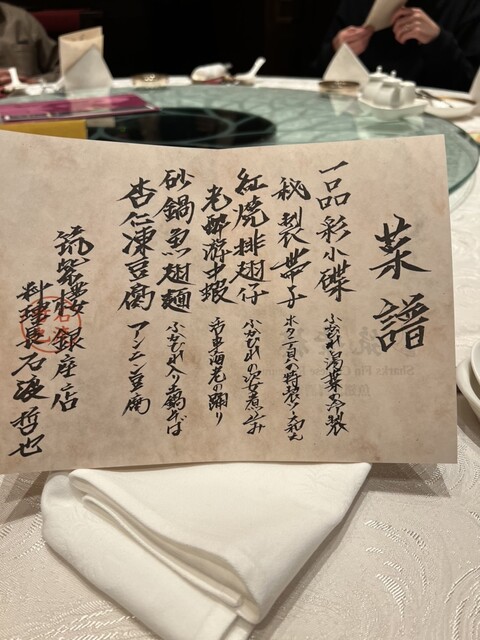 菜譜
一品彩小碟 ふかひれ湯葉の燻製
秘製帯子 ホタテ貝の特製ソース和え
紅焼排翅仔 ふかひれの姿煮込み
老酔游中蝦 活車海老の踊り
砂鍋魚翅麺 ふかひれ入り土鍋そば
杏仁凍豆腐 アンニン豆腐
筑紫樓 銀座店
料理長 石渡 哲也